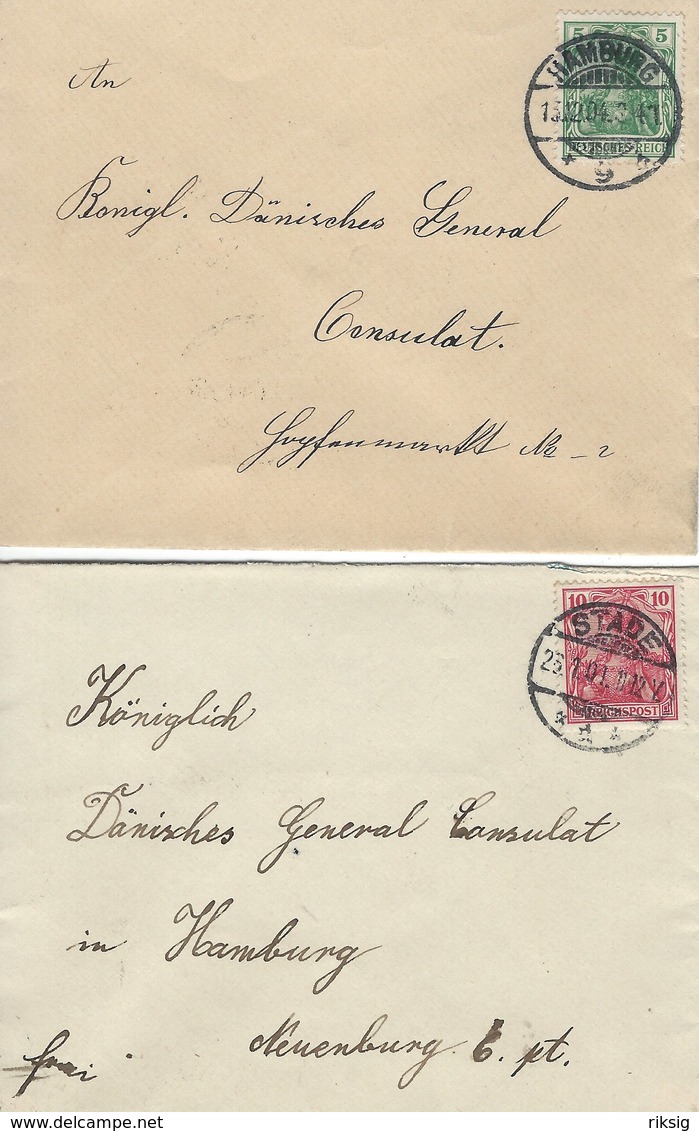 5 5
HAMBURG
DEUTSCHES REICH
9
An
Konigl. Dänisches General
Consulat.
Hopfenmarkt No - 2
10 10
STADE
REICHSPOST
Königlich
Dänisches General Consulat
in Hamburg
Neuenburg 6. pt.
frei
delcampe.net
riksig